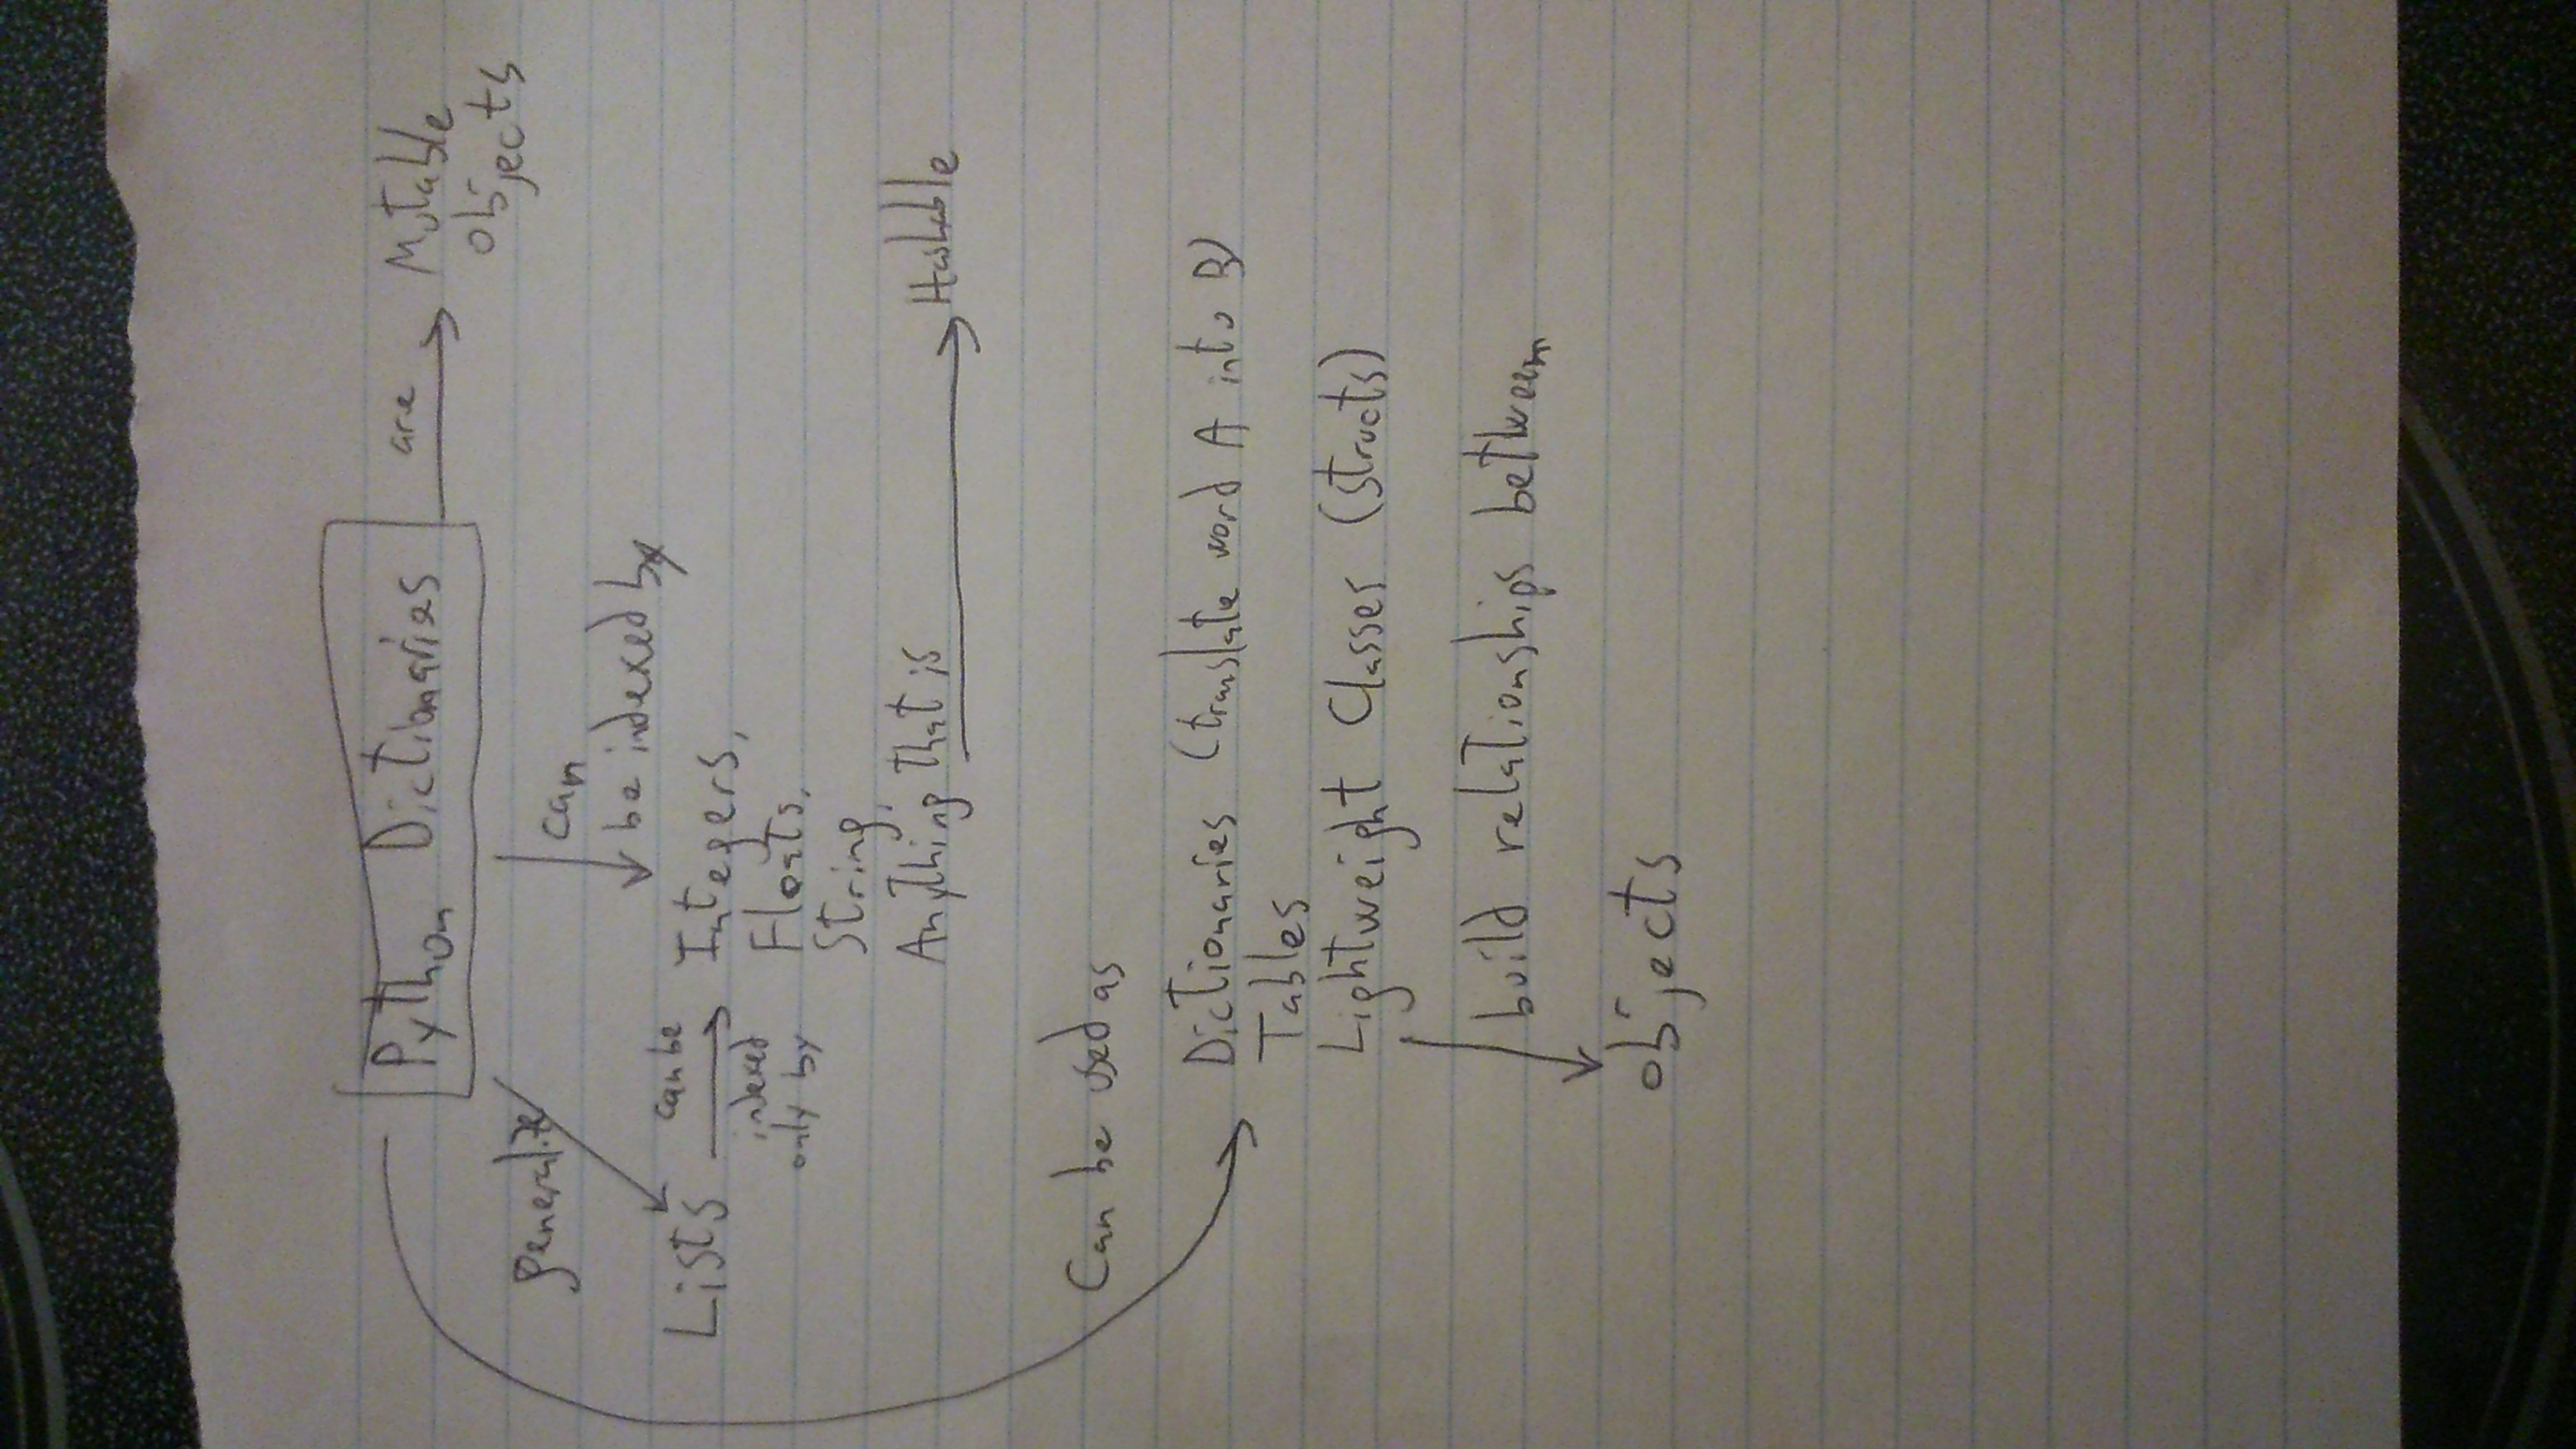 Python Dictionaries
are
Mutable
objects
generalize
can
be indexed by
Lists
can be
indexed
only by
Integers,
Floats,
String,
Anything that is
Hashable
Can be used as
Dictionaries (translate word A into B)
Tables
Lightweight Classes (structs)
build relationships between
objects